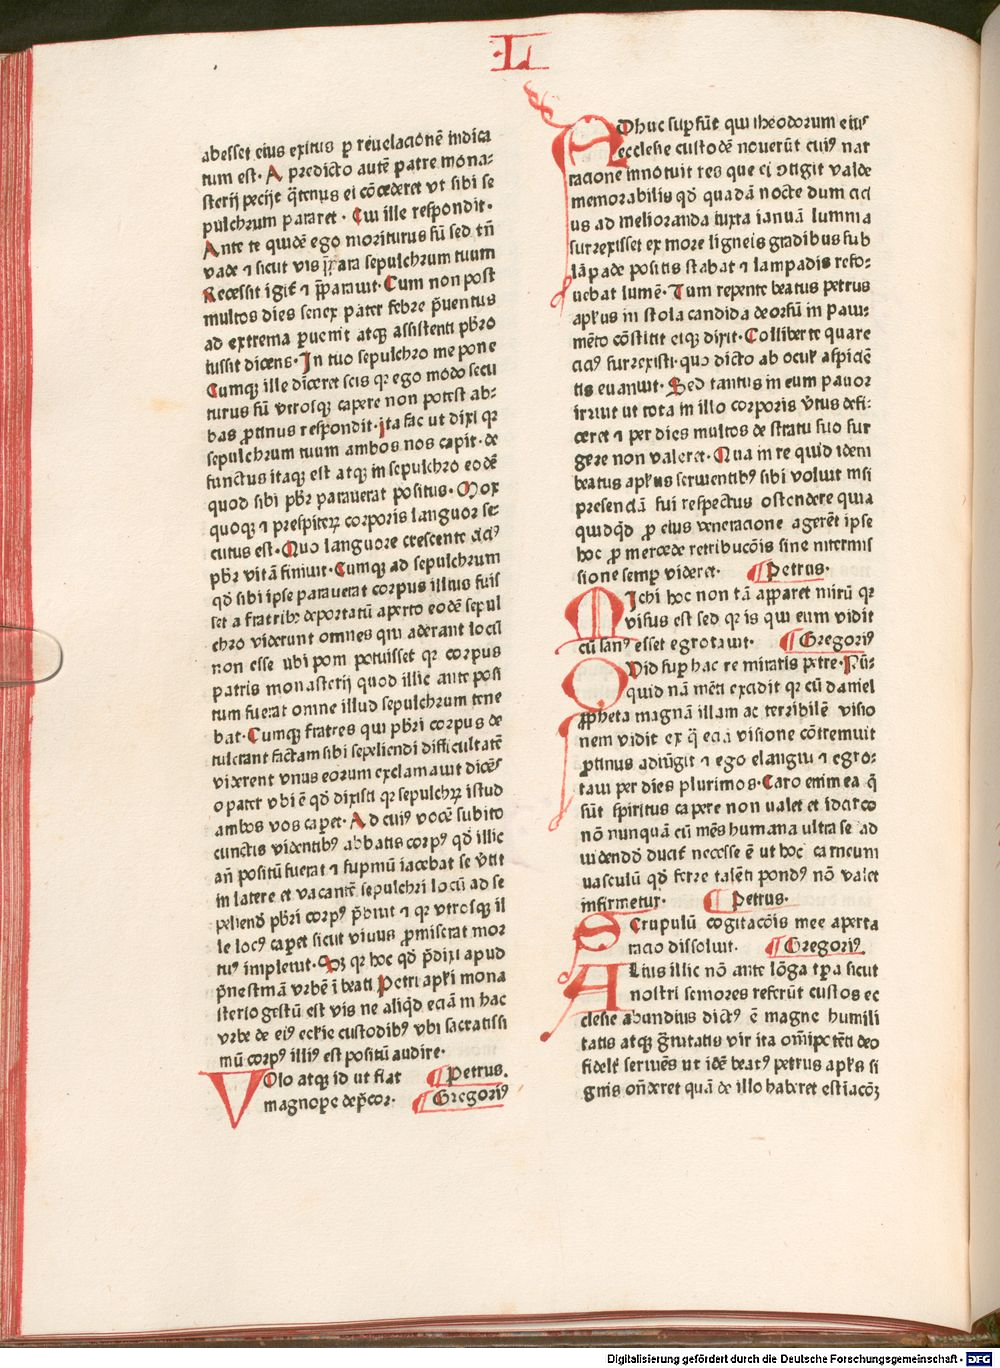 ·L·
abesset eius exitus ꝑ reuelacionē indica
tum est· A predicto autē patre mona⸗
sterij peciјt q̄tenus ei cōcederet vt sibi se
pulchrum pararet· Cui ille respondit·
Ante te quidē ego moriturus sū sed tn̄
vade ⁊ sicut vis ꝑara sepulchrum tuum
Recessit igit̄ ⁊ p̄parauit· Cum non post
multos dies senex pater febre p̄uentus
ad extrema ꝑuenit atqꝫ assistenti pb̄ro
iussit dicens· In tuo sepulchro me pone
Cumqꝫ ille diceret scis qꝛ ego modo secu
turus sū vtrosqꝫ capere non potest ab⸗
bas ꝓtinus respondit· ita fac ut dixi qꝛ
sepulchrum tuum ambos nos capit· de
functus itaqꝫ est atqꝫ in sepulchro eodē
quod sibi pb̄r parauerat positus· Mox
quoqꝫ ⁊ prespiterꝫ corporis languor se⸗
cutus est· Quo languore crescente citiꝰ
pb̄r vitā finiuit· Cumqꝫ ad sepulchrum
qd̄ sibi ipse parauerat corpus illius fuis
set a fratribꝰ deportatū aperto eodē sepul
chro viderunt omnes qui aderant locū
non esse ubi poni potuisset qꝛ corpus
patris monasterij quod illic ante posi
tum fuerat omne illud sepulchrum tene
bat· Cumqꝫ fratres qui pb̄ri corpus de
tulerant factam sibi sepeliendi difficultatē
viderent vnus eorum exclamauit dicēs
o pater vbi ē qd̄ dixisti qꝛ sepulchrꝫ istud
ambos vos capet· Ad cuiꝰ vocē subito
cunctis videntibꝰ abbatis corpꝰ qd̄ illic
an̄ positū fuerat ⁊ supinū iacebat se v̄tit
in latere et vacantē sepulchri locū ad se
peliend̄ pb̄ri corpꝰ p̄buit ⁊ qꝛ vtrosqꝫ il
le locꝰ caperet sicut viuus ꝓmiserat mor
tuꝰ impleuit· Sꝫ qꝛ hoc qd̄ p̄dixi apud
p̄nestinā vrbē ī beati Petri apl̄i mona
sterio gestū est vis ne aliqd̄ eciā in hac
vrbe de eiꝰ ecl̄ie custodibꝰ vbi sacratissi
mū corpꝰ illiꝰ est positū audire·
Volo atqꝫ id ut fiat ¶ Petrus.
magnopere dep̄cor· ¶ Gregoriꝰ
ADhuc suꝑsūt qui theodorum eiꝰ
ecclesie custodē nouerūt cuiꝰ nar
racione innotuit res que ei ↄtigit valde
memorabilis qd̄ quadā nocte dum cici
us ad melioranda iuxta ianuā lumina
surrexisset ex more ligneis gradibus sub
lāpade positis stabat ⁊ lampadis refo⸗
uebat lumē· Tum repente beatus petrus
apl̄us in stola candida deorsū in paui⸗
mēto cōstitit eiqꝫ dixit· Colliberte quare
ciciꝰ surrexisti· quo dicto ab oculꝭ aspiciē
tis euanuit· Sed tantus in eum pauor
irruit ut tota in illo corporis v̄tus defi⸗
ceret ⁊ per dies multos de stratu suo sur
gere non valeret· Qua in re quid idem
beatus apl̄us seruientibꝰ sibi voluit nisi
presenciā sui respectus ostendere quia
quidqd̄ ꝓ eius veneracione agerēt ipse
hoc ꝓ mercede retribucōis sine intermis
sione semꝑ videret· ¶ Petrus·
MIchi hoc non tā apparet mirū qꝛ
visus est sed qꝛ is qui eum vidit
cū sanꝰ esset egrotauit· ¶ Gregoriꝰ
QVid suꝑ hac re miraris petre· Nū⸗
quid nā mēti excidit qꝛ cū daniel
ꝓpheta magnā illam ac terribilē visio
nem vidit ex q̄ eciā visione cōtremuit
ꝓtinus adiūgit ⁊ ego elangui ⁊ egro⸗
taui per dies plurimos· Caro enim ea q̄
sūt spiritus capere non valet et idcirco
nō nunquā cū mēs humana ultra se ad
uidendū ducit̄ necesse ē ut hoc carneum
uasculū qd̄ ferre talēti pondꝰ nō valet
infirmetur· ¶ Petrus·
SCrupulū cogitacōis mee aperta
racio dissoluit· ¶ Gregoriꝰ.
ALius illic nō ante lōga tꝑa sicut
nostri seniores referūt custos ec
clesie abundius dictꝰ ē magne humili
tatis atqꝫ g̃uitatis vir ita om̄ipotēti deo
fidelr̄ seruiēs ut idē beatꝰ petrus apl̄us si
gnis on̄deret quā de illo haberet estiacōꝫ
Digitalisierung gefördert durch die Deutsche Forschungsgemeinschaft - DFG